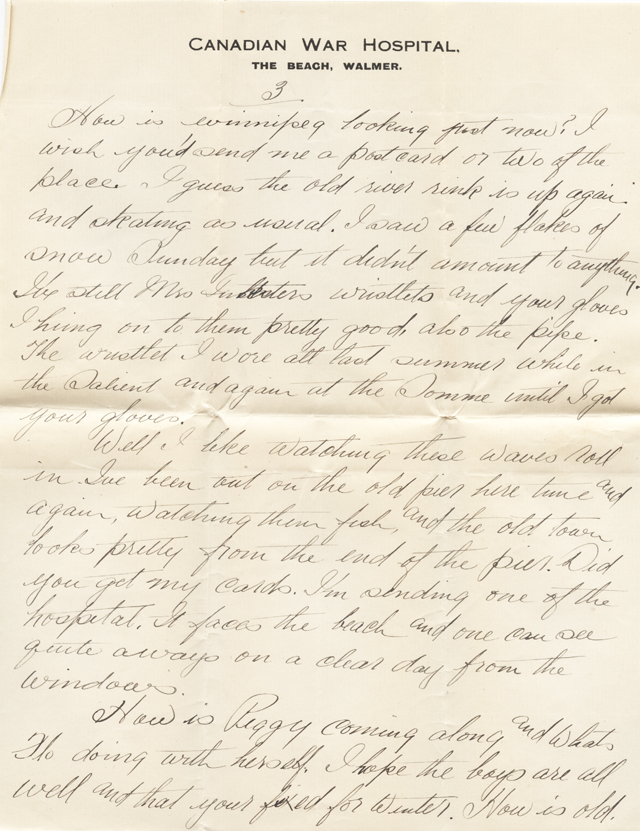 CANADIAN WAR HOSPITAL.
THE BEACH, WALMER.
3
How is winnipeg looking just now? I
wish you'd send me a postcard or two of the
place. I guess the old river rink is up again
and skating as usual. I saw a few flakes of
snow Sunday but it didn't amount to anything.
I've still Mrs wristlets and your gloves
I hung on to them pretty good, also the pipe.
The wristlet I wore all last summer while in
the Salient and again at the Somme until I got
your gloves.
Well I like watching these waves roll
in. I've been out on the old pier here time and
again, watching them fish, and the old town
looks pretty from the end of the pier. Did
you get my cards. I'm sending one of the
hospital. It faces the beach and one can see
quite aways on a clear day from the
windows.
How is Peggy coming along and whats
Flo doing with herself. I hope the boys are all
well and that your fixed for winter. How is old.